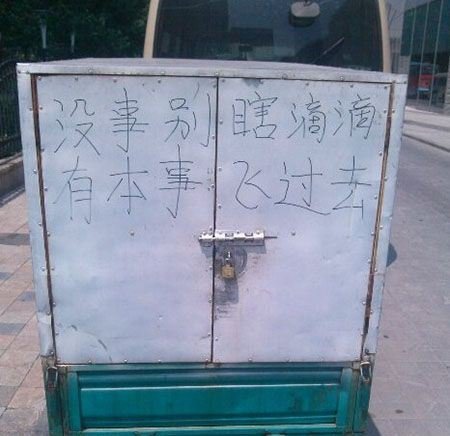 没事别瞎滴滴
有本事飞过去